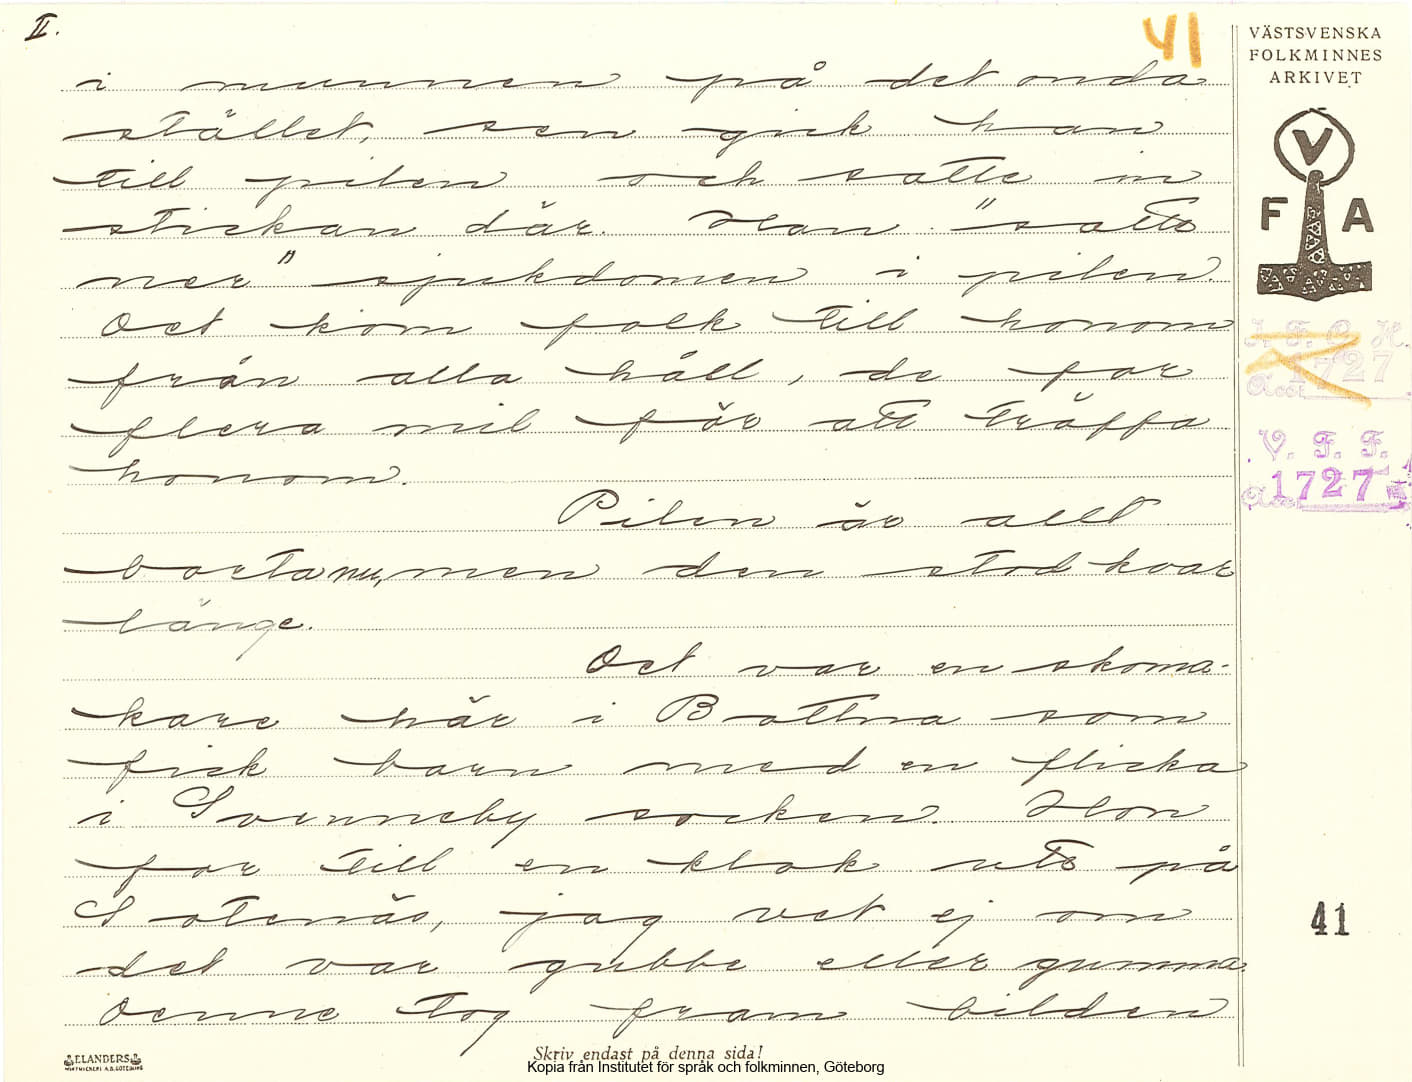 II.
41
VÄSTSVENSKA
FOLKMINNES
ARKIVET
V
F A
i munnen på det onda
stället, sen gick han
till pilen och satte in
stickan där. Han "satte
ner" sjukdomen i pilen.
Det kom folk till honom
från alla håll, de for
flera mil för att träffa
honom.
Pilen är allt
borta nu, men den stod kvar
länge.
Det var en skoma-
kare här i Bottna som
fick barn med en flicka
i Svenneby socken. Hon
for till en klok ute på
Sotenäs, jag vet ej om
det var gubbe eller gumma.
Denne tog fram bilden
I. F. G. H.
Acc. 1727
V. F. F.
Acc. 1727
41
ELANDERS
Skriv endast på denna sida!
Kopia från Institutet för språk och folkminnen, Göteborg